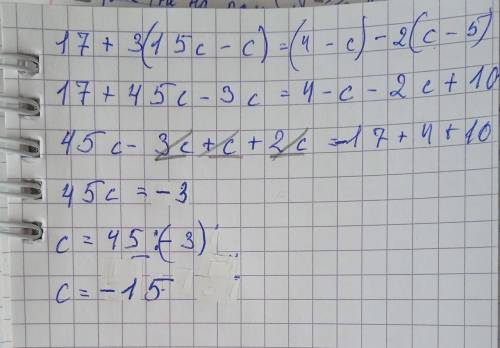 17 + 3(15c - c) = (4 - c) - 2(c - 5)
17 + 45c - 3c = 4 - c - 2c + 10
45c - 3c + c + 2c = -17 + 4 + 10
45c = -3
c = 45 : (-3)
c = -15